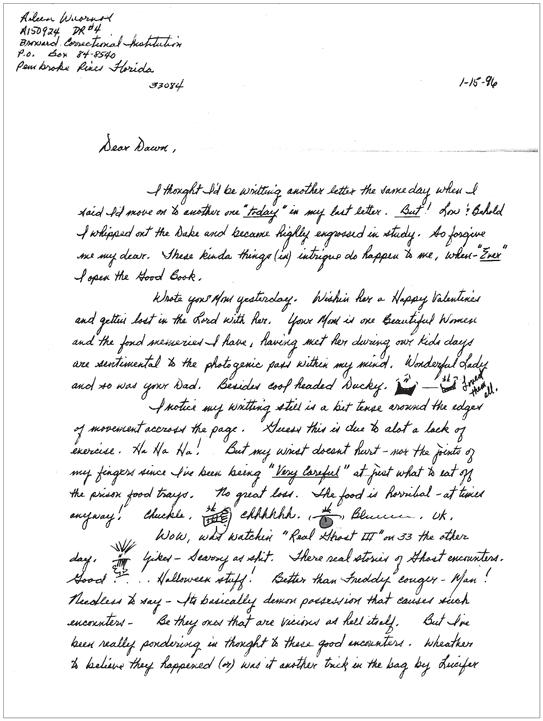 Aileen Wuornos
A150924 DR#4
Broward Correctional Institution
P.O. Box 84-8540
Pembroke Pines Florida
33084
1-15-96
Dear Dawn,
I thought I'd be writting another letter the same day when I
said I'd move on to another one "today" in my last letter. But! Low & Behold
I whipped out the Dake and became highly engrossed in study. So forgive
me my dear. These kinda things (in) intrigue do happen to me, when-"Ever"
I open the Good Book.
Wrote your Mom yesterday. Wishin her a Happy Valentines
and gettin lost in the Lord with her. Your Mom is one Beautiful Women
and the fond memories I have, having met her during our kids days
are sentimental to the photogenic pass within my mind. Wonderful Lady
and so was your Dad. Besides cool headed Ducky. — Loved them all.
I notice my writting still is a bit tense around the edges
of movement accross the page. Guess this is due to alot a lack of
exercise. Ha Ha Ha! But my wrist doesnt hurt - nor the joints of
my fingers since I've been being "Very Careful" at just what to eat off
the prison food trays. No great loss. The food is horribal - at times
anyway! Chuckle. chhhhhh. Bluuuuu. UK.
WOW, was watchin "Real Ghost III" on 33 the other
day. Yikes - Scarry as spit. There real stories of Ghost encounters.
Good . . . Halloween stuff! Better than Freddy couger - Man!
Needless to say - Its basically demon possession that causes such
encounters - Be they ones that are vicious as hell itself. But I've
been really pondering in thought to these good encounters. Wheather
to believe they happened (or) was it another trick in the bag by Lucifer